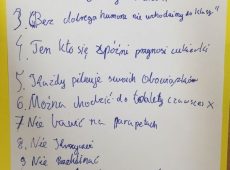 3. Bez dobrego humoru nie wchodzimy do klasy"
4. Ten kto się spóźni przynosi cukierki
5. Każdy pilnuje swoich obowiązków
6. Można chodzić do toalety
7 Nie bawić na parapetach
8. Nie
9 Nie